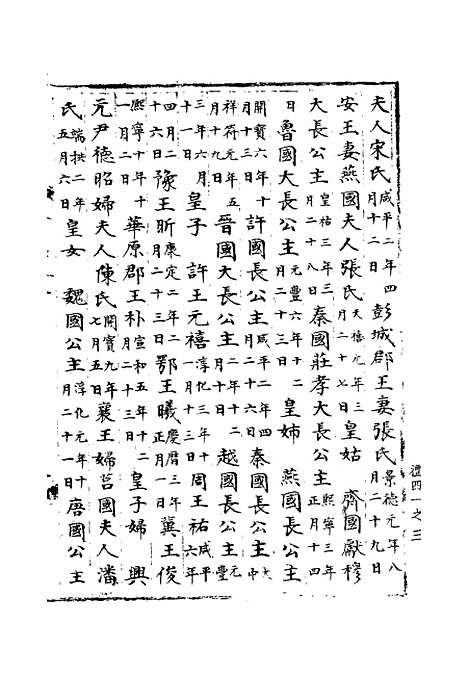 禮四一之三
夫人宋氏咸平二年四月十二日彭城郡王妻張氏景德元年八月二十九日
安王妻燕國夫人張氏天禧元年三月二十七日皇姑齊國獻穆
大長公主皇祐三年三月二十八日秦國莊孝大長公主熙寧三年正月十四
日魯國大長公主元豐六年十二月二十三日皇姉燕國長公主
開寶六年十月十三日許國長公主咸平二年四月十六日秦國長公主大中
祥符元年五月十九日晉國大長公主二年十月二十日越國長公主元豐
三年六月十一日皇子許王元禧淳化三年十一月十三日周王祐咸平六年
四月二十六日豫王昕康定二年二月二十三日鄂王曦慶曆三年一日冀王俊
熙寧十年十一月二日華原郡王朴宣和五年十二月二十三日皇子婦興
元尹德昭婦夫人陳氏開寶九年七月五日襄王婦莒國夫人潘
氏端拱二年五月六日皇女魏國公主淳化元年十月二十一日唐國公主